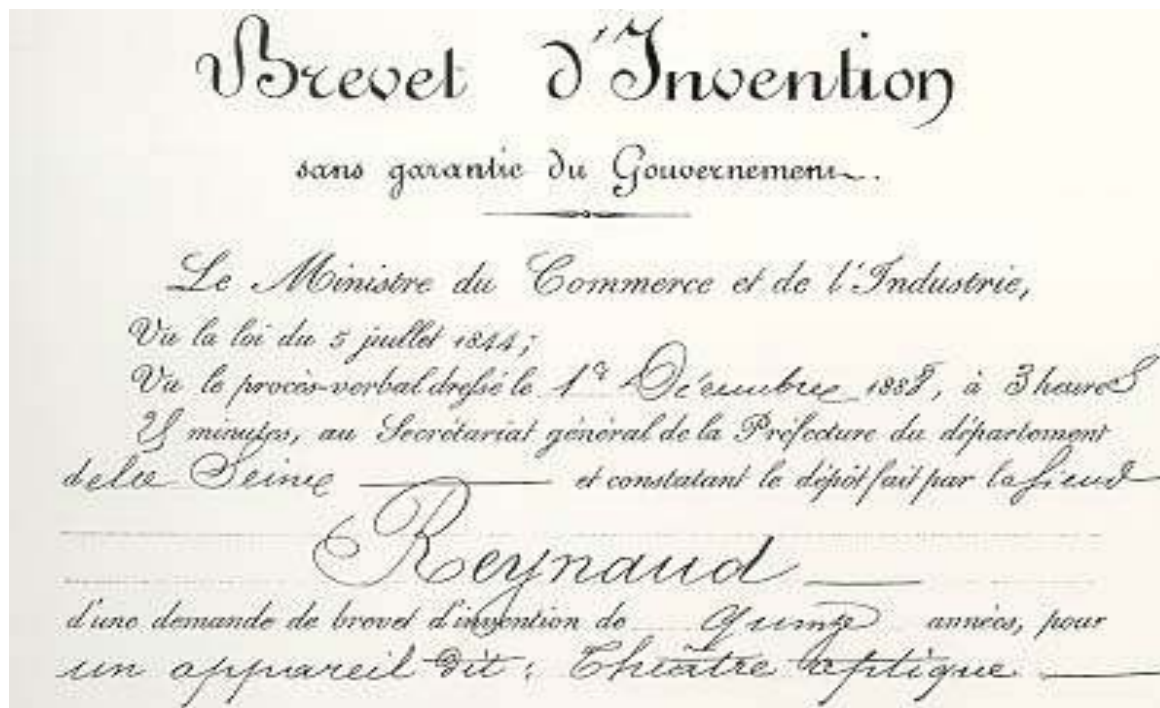 Brevet d'Invention
sans garantie du Gouvernement.
Le Ministre du Commerce et de l'Industrie,
Vu la loi du 5 juillet 1844;
Vu le procès-verbal dressé le 1er Décembre 1888, à 3 heures
minutes, au Secrétariat général de la Préfecture du département
de la Seine et constatant le dépôt fait par le Sieur
Reynaud
d'une demande de brevet d'invention de quinze années, pour
un appareil dit: Théâtre optique